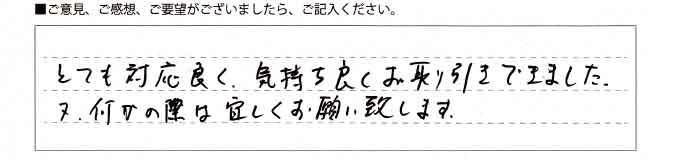 ■ご意見、ご感想、ご要望がございましたら、ご記入ください。
とても対応良く、気持ち良くお取り引きできました.
又、何かの際は宜しくお願い致します.